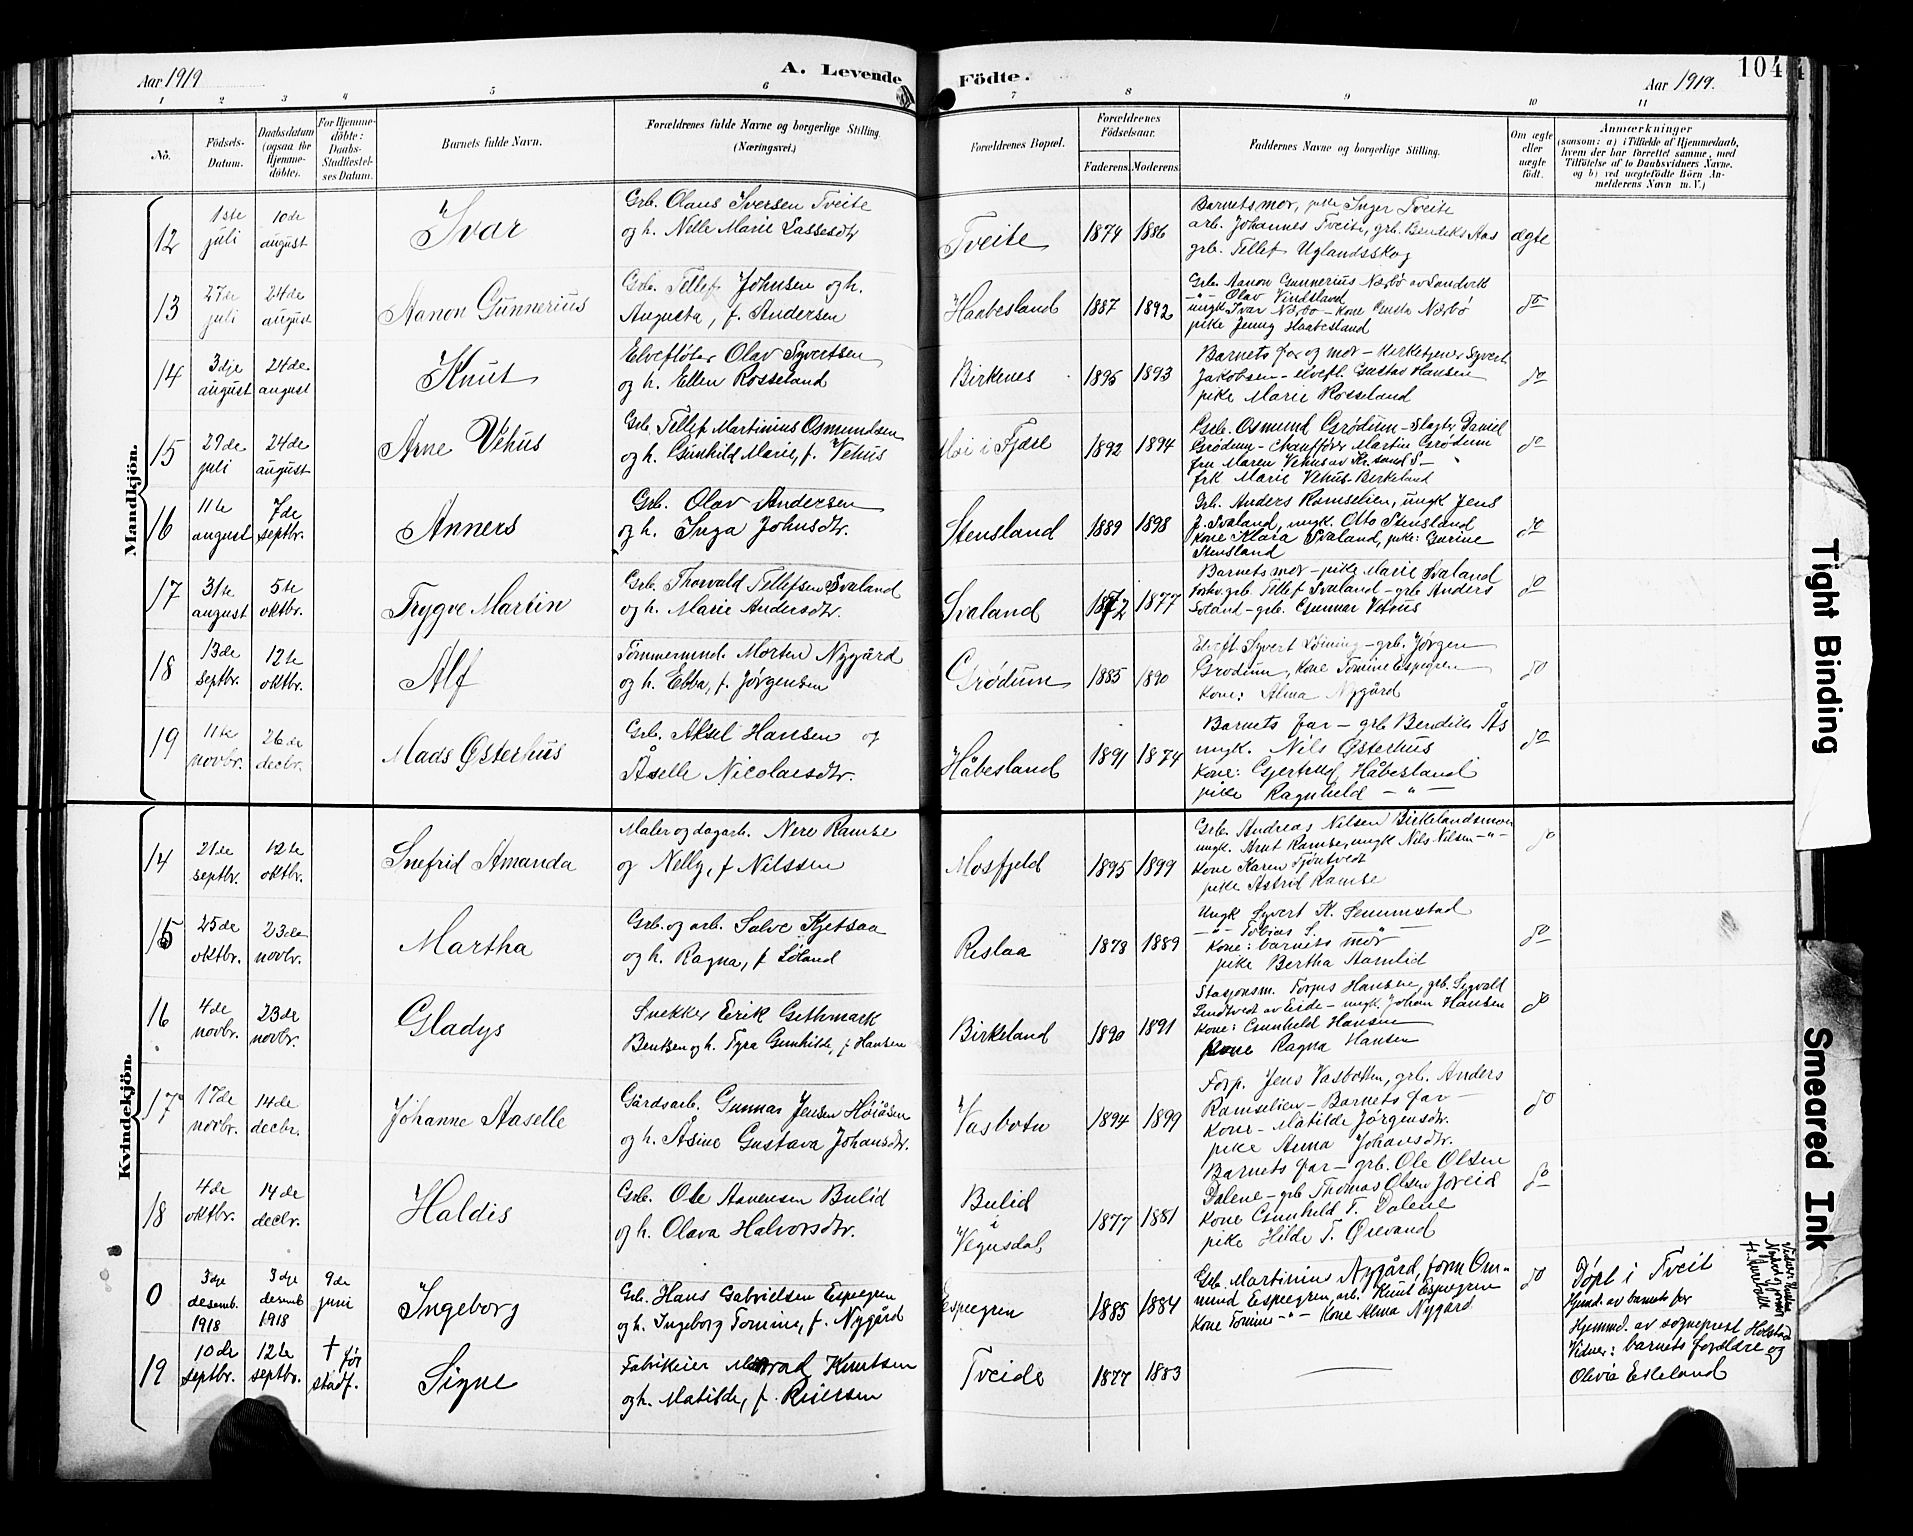 Aar 1919
A. Levende
Födte.
Aar 1919.
104
1 2 3 4 5 6 7 8 9 10 11
No.
Födsels-
Datum.
Daabsdatum
(ogsaa for
Hjemme-
döbte).
For Hjemme-
döbte:
Daabs-
Stadfæstel-
ses Datum.
Barnets fulde Navn.
Forældrenes fulde Navne og borgerlige Stilling.
(Næringsvei.)
Forældrenes Bopæl.
Forældrenes
Födselsaar.
Faderens. Moderens.
Faddernes Navne og borgerlige Stilling.
Om ægte
eller
uægte
födt.
Anmærkninger
(saasom: a) i Tilfælde af Hjemmedaab,
hvem der har forrettet samme, med
Tilföielse af to Daabsvidners Navne.
og b) ved uægtefödte Börn An-
melderens Navn m. V.)
Mandkjön.
12
1ste
juli
10de
august
Ivar
Grb. Olaus Iversen Tveite
og h. Nelle Marie Lassesdtr
Tveite
1874 1886
Barnets mor, pike Inger Tveite
arb. Johannes Tveite, grb. Bendiks Aas
grb. Tellef Uglandsskog
ægte
13
27de
juli
24de
august
Aanon Gunnerius
Grb. Tellef Johnsen og h.
Augusta, f. Andersen
Haabesland
1887 1892
Grb. Aanon Gunnerius Nærbö av Sandvik
-"- Olav Vindsland
ungk. Ivar Nærbö - kone Nærbö
pike Jenny Haabesland
do
14
3dje
august
24de
august
Knut
Elvefløter Olav Syvertsen
og h. Ellen Rosseland
Birkenes
1895 1893
Barnets far og mor - Kirketjener Syvert
Jakobsen - elvefl. Gustav Hansen
pike Marie Rosseland
do
15
29de
juli
24de
august
Arne Vehus
Grb. Tellef Martinius Osmundsen
og h. Gunhild Marie, f. Vehus
Moi i Fjære
1892 1894
Grb. Osmund Grödum - Slagter Daniel
Grödum - Chauffør Martin Grödum
fru Maren Vehus av Kr.sand S -
frk Marie Vehus Birkeland
do
16
11te
august
7de
septbr.
Anners
Grb. Olav Andersen
og h. Inga Johnsdtr.
Stensland
1889 1898
Grb. Anders Ramselien, ungk Jens
J. Svaland, ungk. Otto Stensland
kone Klara Svaland, pike: Gurine
Stensland
do
17
31te
august
5te
oktbr.
Trygve Martin
Grb. Thorvald Tellefsen Svaland
og h. Marie Andersdtr.
Svaland
1872 1877
Barnets mor - pike Marie Svaland
forhv. grb. Tellef Svaland - grb Anders
Soland - grb. Gunnar Vehus
do
18
13de
septbr.
12te
oktbr.
Alf
Tømmermnd. Morten Nygård
og h. Ebba, f. Jørgensen
Grødum
1885 1890
Syvert Løining - grb. Jørgen
Grødum, kone Tomine Espegren
kone: Alma Nygård
do
19
11te
novbr.
26de
decbr.
Mads Østerhus
Grb. Aksel Hansen og
Åselle Nicolaisdtr.
Håbesland
1891 1874
Barnets far - grb Bendik Ås
ungk. Nils Østerhus
kone: Gjertrud Håbesland
pike Ragnhild - " -
do
Kvindekjön.
14
21de
septbr.
12te
oktbr.
Snefrid Amanda
Maler og dagarb. Nere Ramse
og Nelly, f Nilssen
Mosfjeld
1895 1899
Grb. Andreas Nilsen Birkelandsmoen
ungk. Arnt Ramse, ungk Nils Nilsen -"-
kone Karen Tjöntvedt
pike Astrid Ramse
do
15
25de
oktbr.
23de
novbr.
Martha
Grb. og arb. Salve Kjetsaa
og h. Ragna, f Löland
Reslaa
1878 1889
Ungk Syvert K. Senumstad
-"- Tobias S. "
kone: barnets mor
pike Bertha Aamlid
do
16
4de
novbr.
23de
novbr.
Gladys
Snekker Eirik Gethmark
Bentsen og h. Tyra Gunhilde, f Hansen
Birkeland
1890 1891
Stasjonsm. Torjus Hansen, grb. Sigvald
Lindtvedt av Eide - ungk. Johan Hansen
kone: Gunhild Hansen
kone Ragna Hansen
do
17
17de
novbr.
14de
decbr.
Johanne Aaselle
Gårdsarb. Gunnar Jensen Høiåsen
og h. Åsine Gustava Johansdtr.
Vasbotn
1894 1899
Forp. Jens Vasbotten, grb. Anders
Ramselien - Barnets far -
kone - Matilde Jørgensdtr.
pike Anna Johansdtr.
do
18
4de
oktbr.
14de
decbr.
Haldis
Grb. Ole Aanensen Bulid
og h. Olava Halvorsdtr.
Bulid
i
Vegusdal
1877 1881
Barnets far - grb. Ole Olsen
Dalene - grb Thomas Olsen Joreid
kone Gunhild T. Dalene
pike Hilda T. Orevand
do
0
3dje
desemb.
1918
3dje
desemb
1918
9de
juni
Ingeborg
Grb. Hans Gabrielsen Espegren
og h. Ingeborg Tomine, f. Nygård
Espegren
1885 1884
Grb. Martinius Nygård, form Om-
mund Espegren, arb. Knut Espegren
kone Tomine -"- kone Alma Nygård
do
Döpt i Tveit
Hjemd. av barnets far
19
10de
septbr.
12te
septbr.
† før
stadf.
Signe
Fabrikeier Knutsen
og h. Matilde, f. Reiersen
Tveide
1877 1883
Hjemmd. av sogneprest Holstad
Vidner: barnets forældre og
Olivie Eskeland
Tight Binding
Smeared Ink